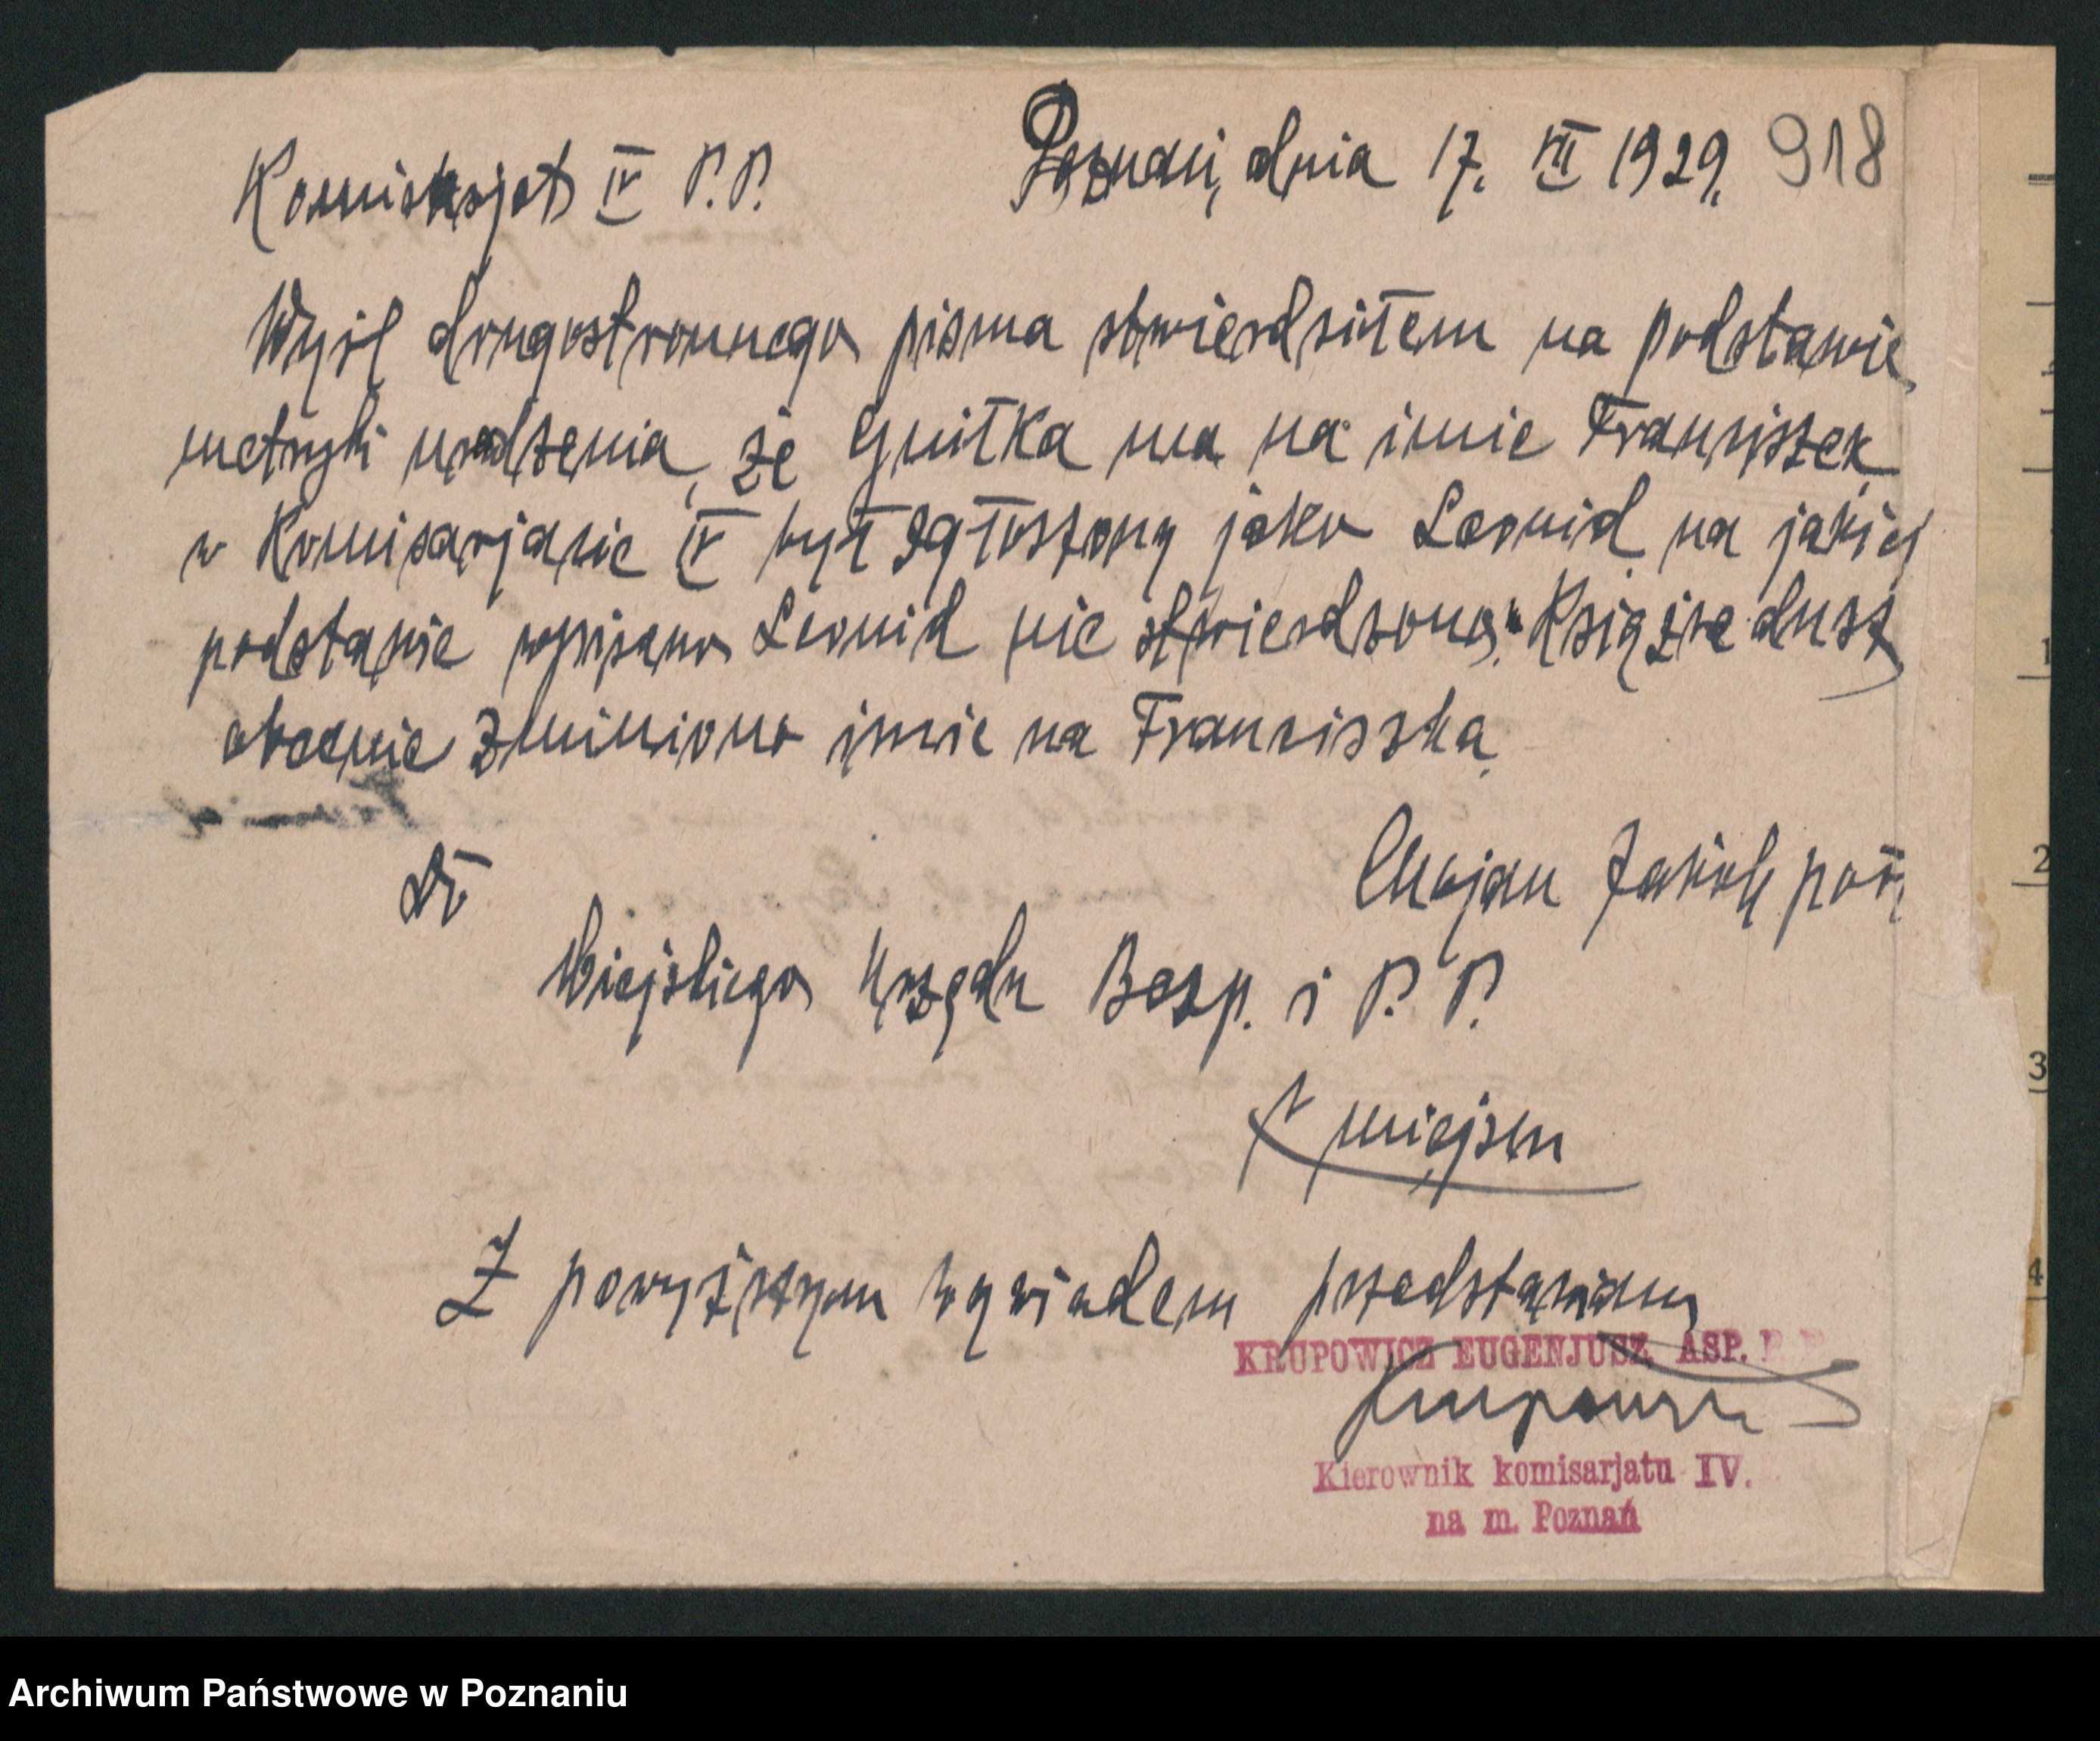 Komisarjat IV P.P. Poznań, dnia 17. VII 1929. 918
Wyżł drugostronnego pisma stwierdziłem na podstawie
metryki urodzenia, że Gniłka ma na imie Franciszek
w Komisarjacie IV był zgłoszony jako Leonid na jakiej
podstawie wpisano Leonid nie stwierdzono. Księżce dusz
obecnie zminiono imie na Franciszka.
Chojan Jakób
Do
Miejskiego Urzędu Bezp. i P. P.
w miejscu
Z powyższym wywiadem przedstawiam
KRUPOWICZ EUGENJUSZ ASP. P. P.
Kierownik komisarjatu IV.
na m. Poznań
1
2
3
4
Archiwum Państwowe w Poznaniu